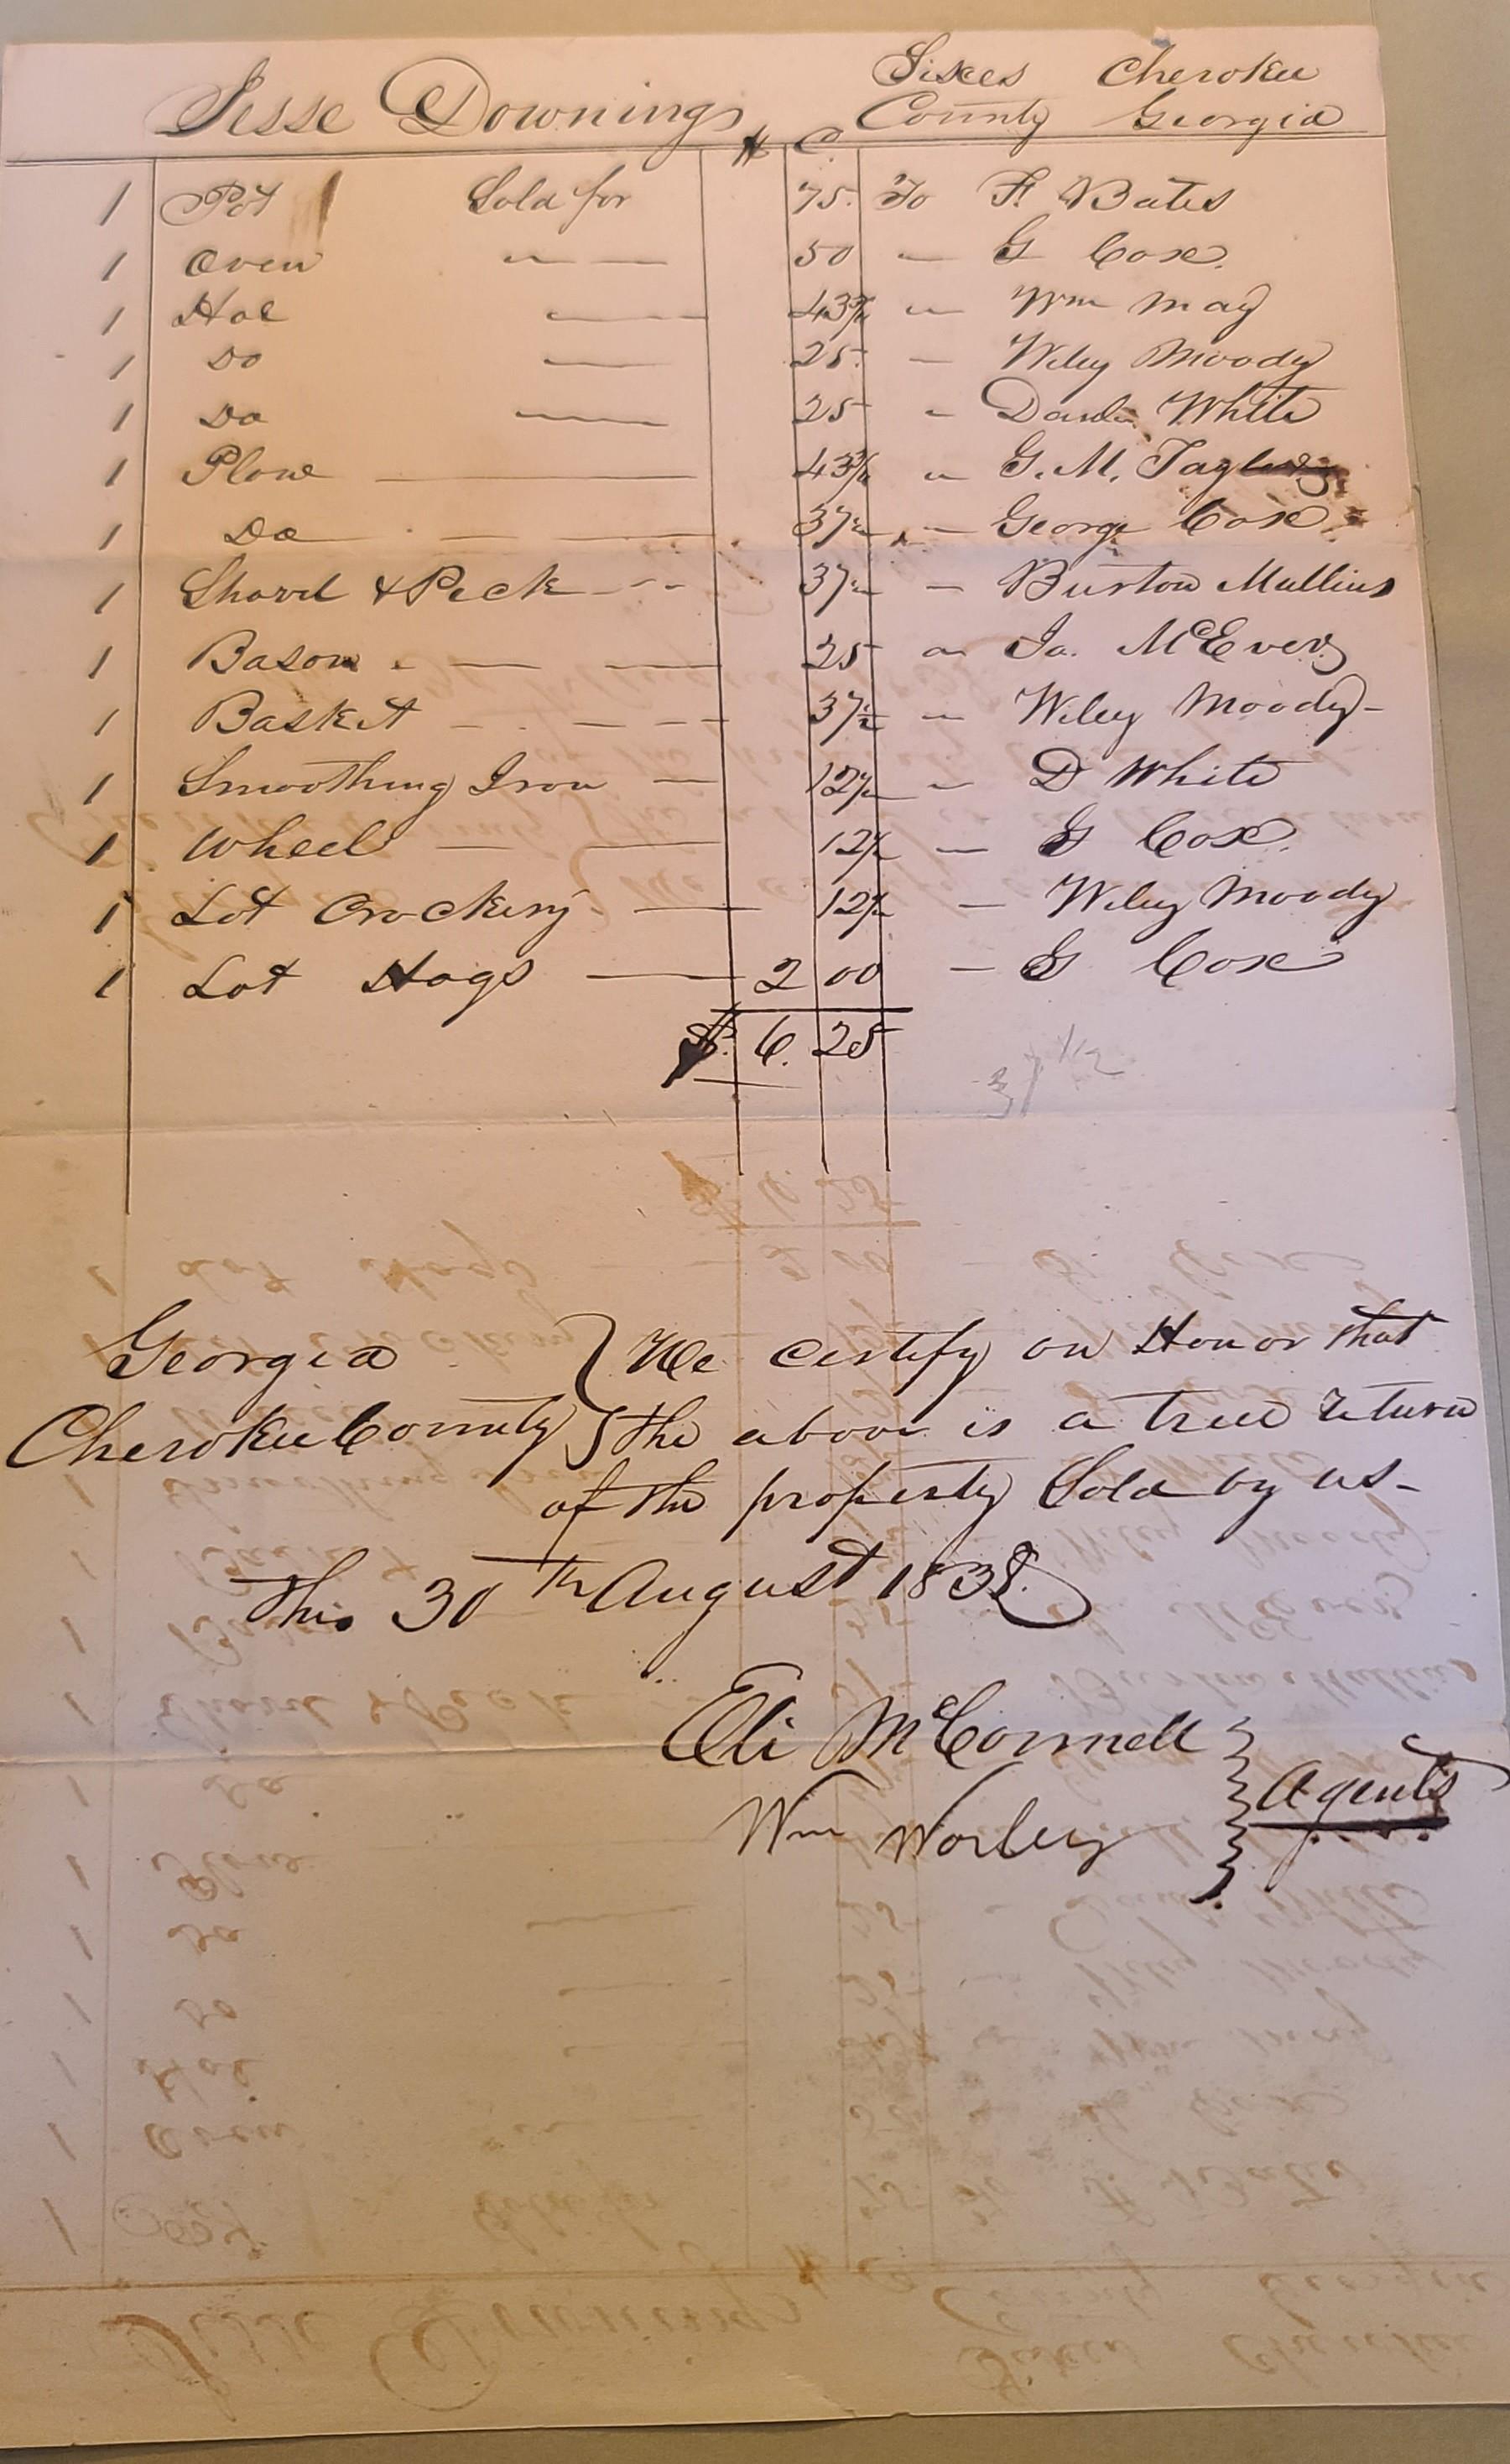 Jesse Downings Sixes Cherokee
County Georgia
$ C
1 Pot Sold for 75. To F. Bates
1 Oven " — 50 — G Cox.
1 Hoe — 43¾ " Wm May
1 Do — 25. — Wiley Moody
1 Do — 25 " White
1 Plow — 43¾ " G. M. Taylor
1 Do — — 37½ — George Cox
1 Shovel & Peck - - 37½ — Burton Mullins
1 Bason . — — 25 " Ja. McEver
1 Basket — - — - - 37½ " Wiley Moody -
1 Smoothing Iron — 12½ " D White
1 Wheel — — 12½ — G Cox.
1 Lot Crockery — 12½ — Wiley Moody
1 Lot Hogs — 2 00 — G Cox
$. 6. 25
37 1/2
Georgia } We certify on Honor that
Cherokee County } the above is a true return
of the property Sold by us -
this 30th August 1838.
Eli McConnell } Agents
Wm Worley